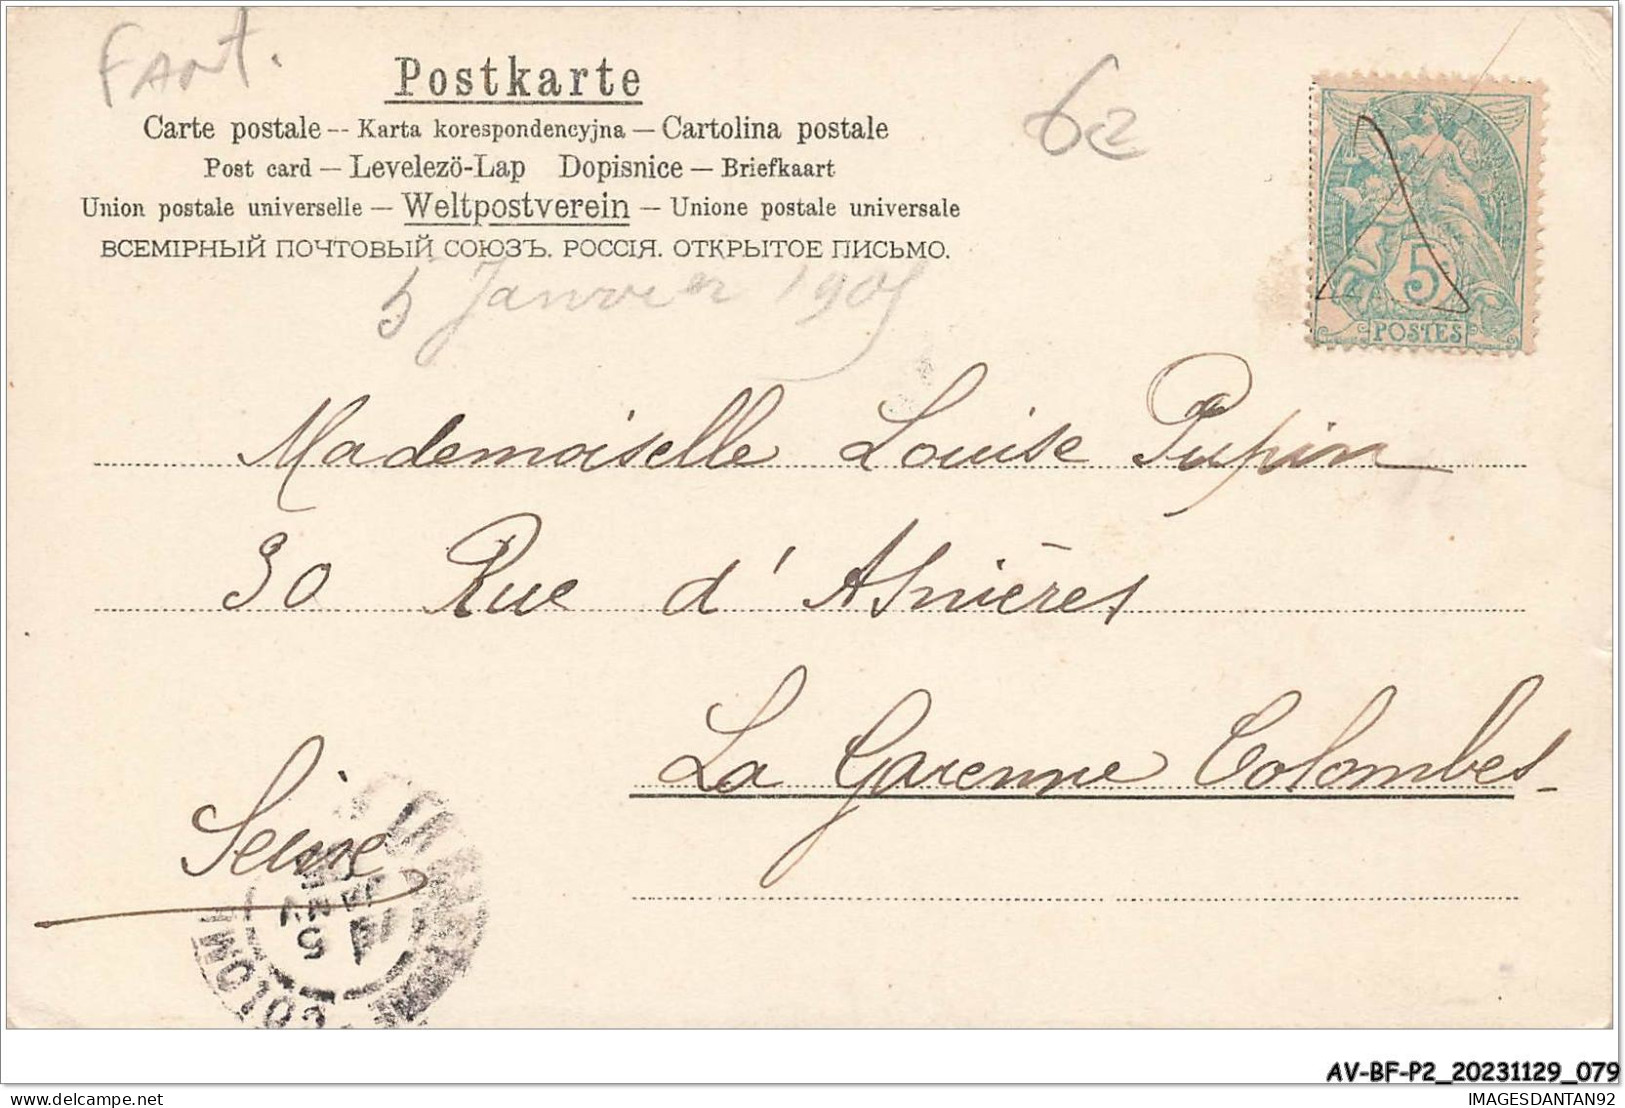 Fant.
Postkarte
62
Carte postale -- Karta korespondencyjna — Cartolina postale
Post card — Levelezö-Lap Dopisnice — Briefkaart
Union postale universelle — Weltpostverein — Unione postale universale
ВСЕМІРНЫЙ ПОЧТОВЫЙ СОЮЗЪ. РОССІЯ. ОТКРЫТОЕ ПИСЬМО.
5 Janvier 1905
5c
POSTES
Mademoiselle Louise Pupin
30 Rue d'Asnières
La Garenne Colombes
Seine
COLOM
AV-BF-P2_20231129_079
delcampe.net
IMAGESDANTAN92